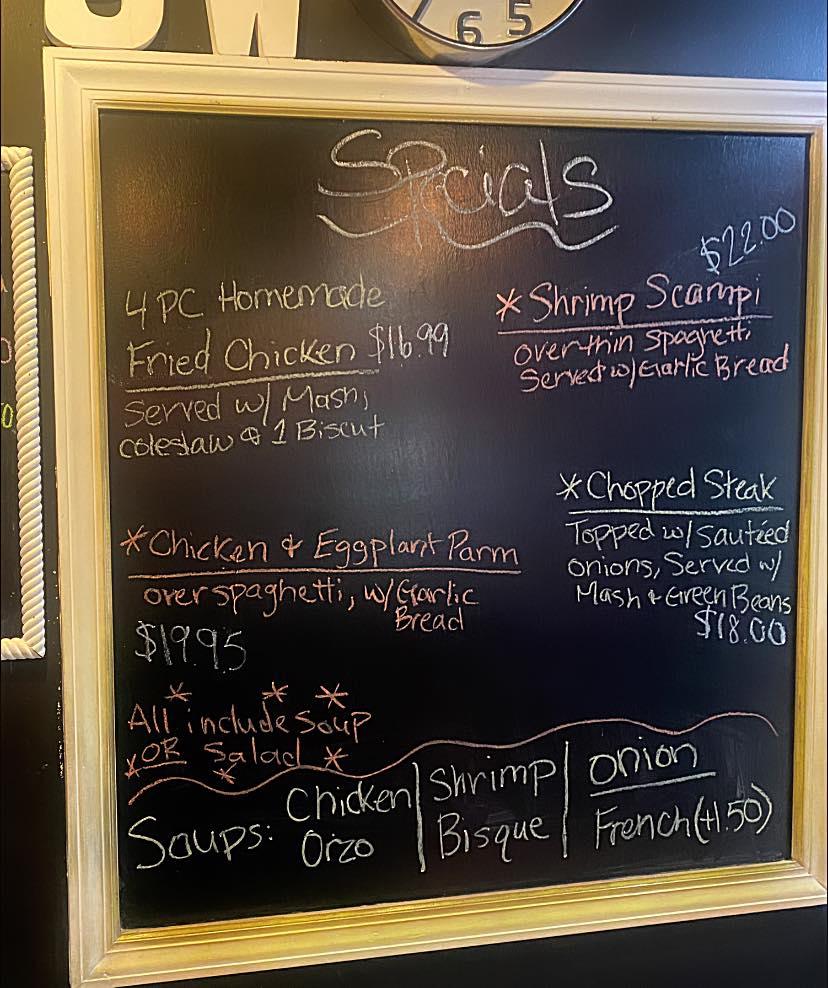 OW
6 5
Spcials
4 PC Homemade
Fried Chicken $16.99
Served w/ Mash,
coleslaw & 1 Biscut
$22.00
*Shrimp Scampi
over thin spaghetti
Served w/ Garlic Bread
*Chopped Steak
Topped w/ Sautéed
onions, Served w/
Mash & Green Beans
$18.00
*Chicken & Eggplant Parm
over spaghetti, w/ Garlic
Bread
$19.95
* * *
All include soup
*OR Salad *
*
Soups: Chicken Orzo | Shrimp Bisque | onion French (+1.50)